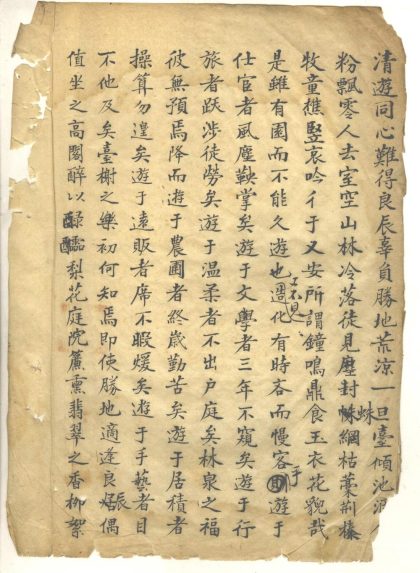 清遊同心難得良辰辜負勝地荒凉一旦臺傾池
粉飄零人去室空山林冷落徒見塵封蛛網枯藁荆榛
牧童樵竪哀吟彳亍又安所謂鐘鳴鼎食玉衣花貌哉
是雖有園而不能久遊也化工不見有時吝而慢客乎遊于
仕官者風塵鞅掌矣遊于文學者三年不窺矣遊于行
旅者跃涉徒勞矣遊于温柔者不出户庭矣林泉之福
彼無預焉降而遊于農圃者終歲勤苦矣遊于居積者
操算勿遑矣遊于遠販者席不暇煖矣遊于手藝者目
不他及矣臺榭之樂初何知焉即使勝地適逢良辰偶
值坐之高閣醉以醁醽梨花庭院簾熏翡翠之香柳絮